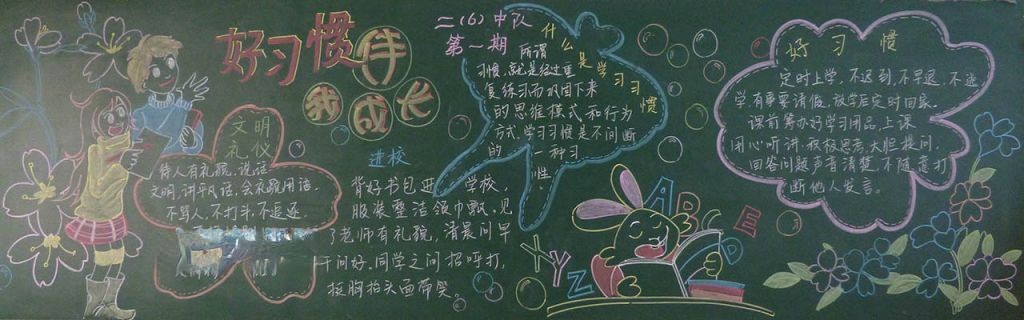 好习惯伴
我成长
二(6)中队
第一期
文明
礼仪
待人有礼貌,说话
文明,讲平凡话,会礼貌用语.
不骂人,不打斗,不追逐.
进校
背好书包进 学校,
服装整洁领巾飘,见
了老师有礼貌,清晨问早
午问好.同学之间招呼打,
挺胸抬头面带笑.
什么是学习习惯
所谓
习惯,就是经过重
复练习而巩固下来
的思维模式和行为
方式,学习习惯是不间断
的 一种习
惯性.
XYZ
ABC
D
E
好习惯
定时上学,不迟到,不早退,不逃
学有事要请假,放学后定时回家.
课前筹办好学习用品,上课
用心听讲,积极思考,大胆提问,
回答问题声音清楚,不随意打
断他人发言.